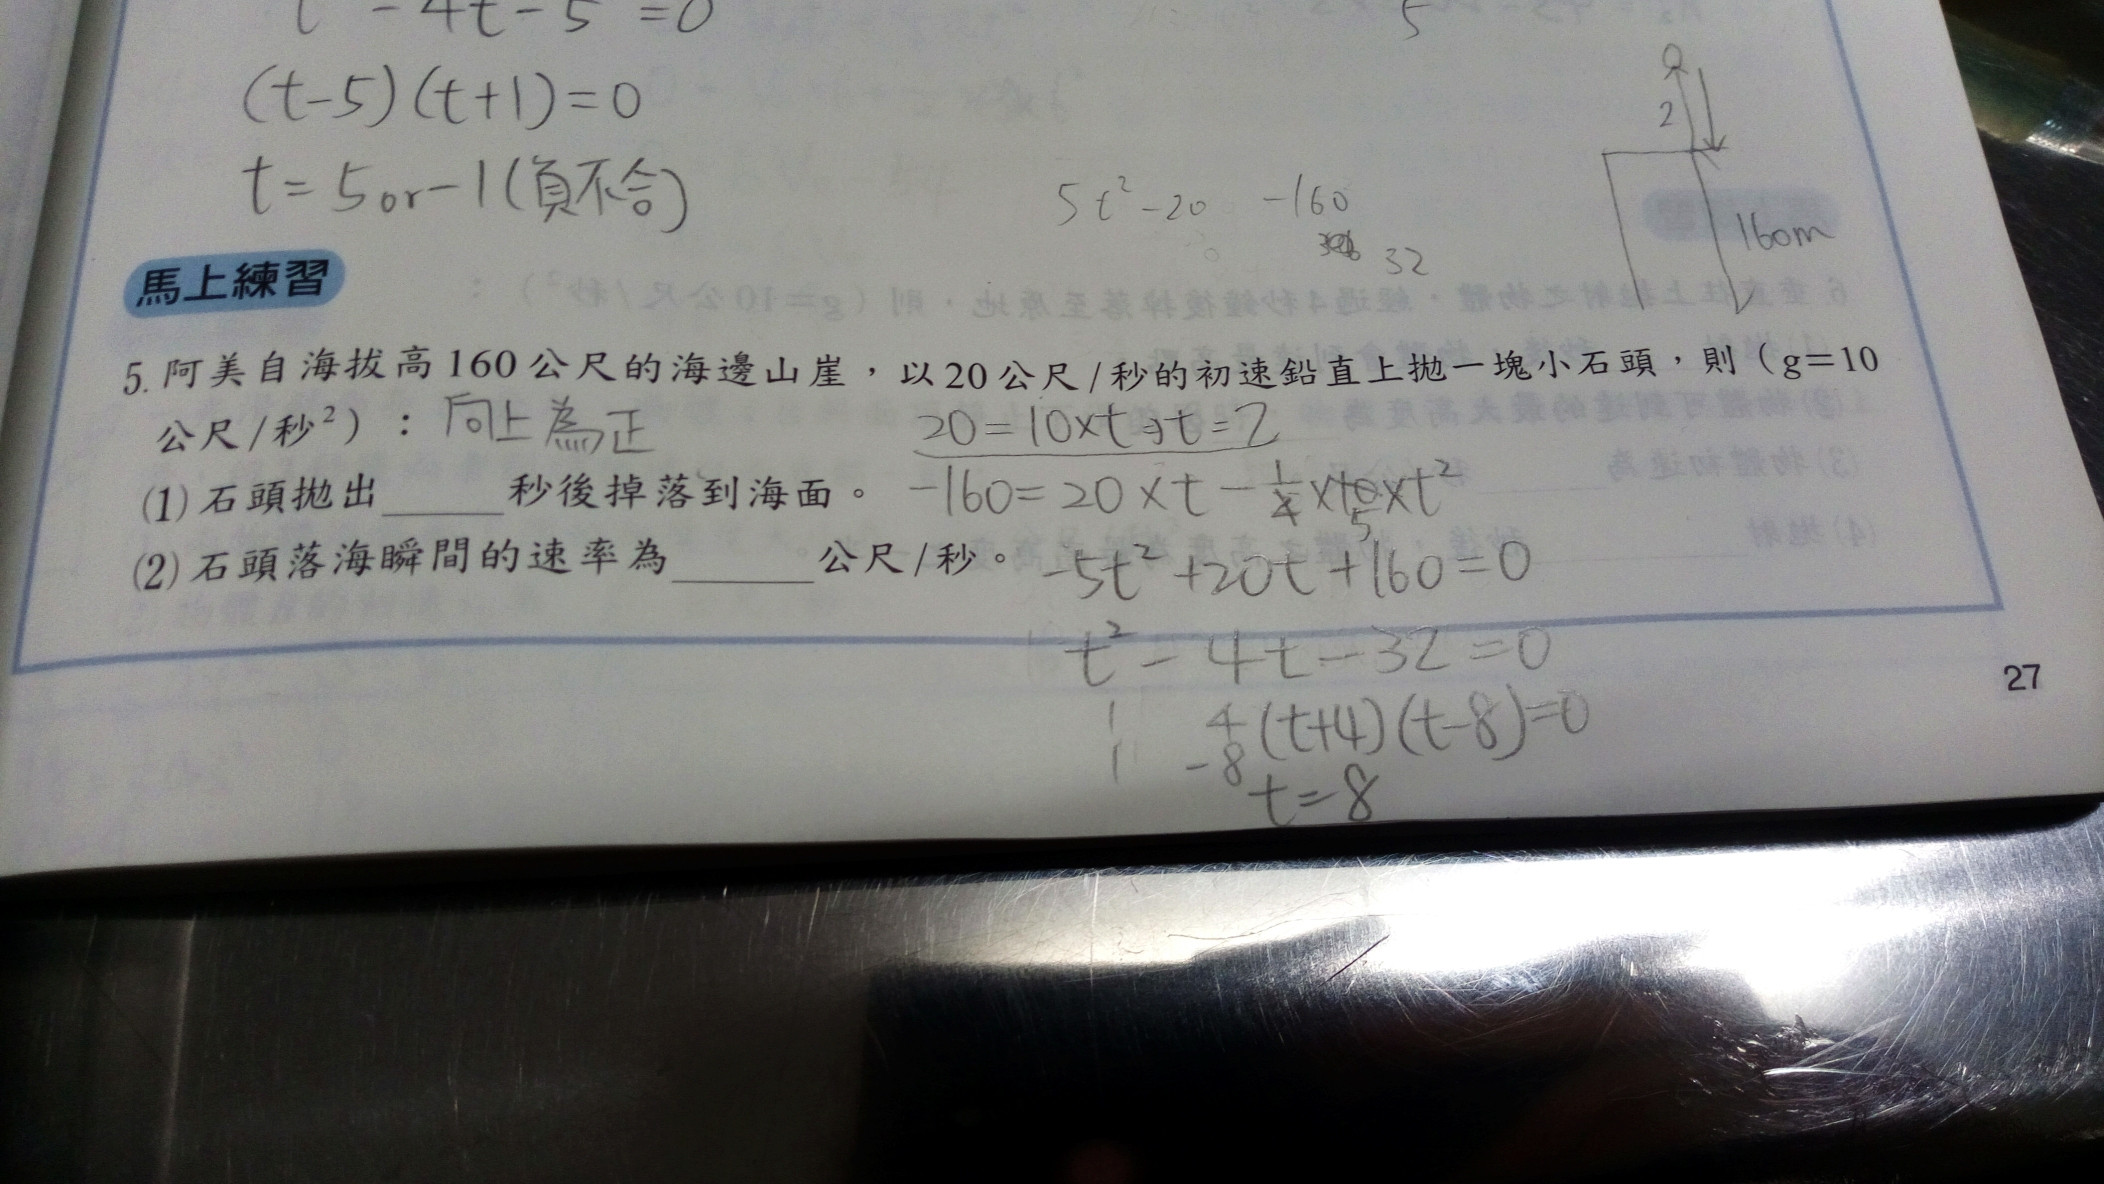 t² - 4t - 5 = 0
5
(t-5)(t+1)=0
t = 5 or -1 (負不合)
2
160m
5t² -20 -160
32
馬上練習
5. 阿美自海拔高160公尺的海邊山崖，以20公尺/秒的初速鉛直上拋一塊小石頭，則（g=10
公尺/秒²）：向上為正
20=10×t→t=2
(1)石頭拋出______秒後掉落到海面。
-160=20×t-½×10×t²
5
(2)石頭落海瞬間的速率為______公尺/秒。
-5t²+20t+160=0
t²-4t-32=0
1 4 (t+4)(t-8)=0
1 -8
t=8
27